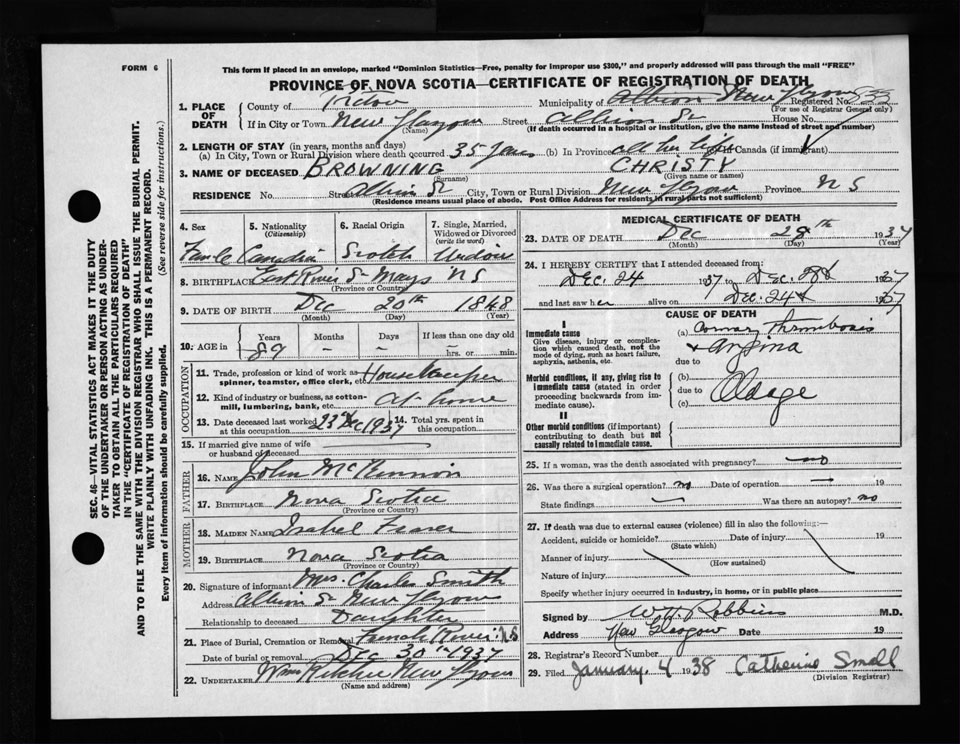 FORM 6
This form if placed in an envelope, marked "Dominion Statistics—Free, penalty for improper use $300," and properly addressed will pass through the mail "FREE"
PROVINCE OF NOVA SCOTIA—CERTIFICATE OF REGISTRATION OF DEATH
1. PLACE OF DEATH
County of Pictou Municipality of Albion New Glasgow Registered No.
(For use of Registrar General only)
If in City or Town New Glasgow Street Albion St House No.
(Name) (If death occurred in a hospital or institution, give the name instead of street and number)
2. LENGTH OF STAY (in years, months and days)
(a) In City, Town or Rural Division where death occurred 35 years (b) In Province all her life Canada (if immigrant)
3. NAME OF DECEASED BROWNING CHRISTY
(Surname) (Given name or names)
RESIDENCE No. Street Albion St City, Town or Rural Division New Glasgow Province N S
(Residence means usual place of abode. Post Office Address for residents in rural parts not sufficient)
4. Sex 5. Nationality (Citizenship) 6. Racial Origin 7. Single, Married, Widowed or Divorced (write the word)
Female Canadian Scotch Widow
8. BIRTHPLACE East River St Marys N S
(Province or Country)
9. DATE OF BIRTH Dec 20th 1848
(Month) (Day) (Year)
10. AGE in Years Months Days If less than one day old
89 – – hrs. or min.
OCCUPATION
11. Trade, profession or kind of work as spinner, teamster, office clerk, etc. Housekeeper
12. Kind of industry or business, as cotton-mill, lumbering, bank, etc. at home
13. Date deceased last worked at this occupation 23 Dec 1937 14. Total yrs. spent in this occupation
15. If married give name of wife or husband of deceased
FATHER
16. NAME John McKinnon
17. BIRTHPLACE Nova Scotia
(Province or Country)
MOTHER
18. MAIDEN NAME Isabel Fraser
19. BIRTHPLACE Nova Scotia
(Province or Country)
20. Signature of informant Mrs. Charles Smith
Address Albion St New Glasgow
Relationship to deceased Daughter
21. Place of Burial, Cremation or Removal French River N S
Date of burial or removal Dec 30th 1937
22. UNDERTAKER Ritchie New Glasgow
(Name and address)
MEDICAL CERTIFICATE OF DEATH
23. DATE OF DEATH Dec 28th 1937
(Month) (Day) (Year)
24. I HEREBY CERTIFY that I attended deceased from:
Dec. 24 1937 to Dec. 28th 1937
and last saw her alive on Dec. 24th 1937
CAUSE OF DEATH
I
Immediate cause
Give disease, injury, or complication which caused death, not the mode of dying, such as heart failure, asphyxia, asthenia, etc.
(a) Coronary Thrombosis
+ Angina
due to
Morbid conditions, if any, giving rise to immediate cause (stated in order proceeding backwards from immediate cause).
(b) Old age
due to
(c)
II
Other morbid conditions (if important) contributing to death but not causally related to immediate cause.
25. If a woman, was the death associated with pregnancy? no
26. Was there a surgical operation? no Date of operation — 19
State findings — Was there an autopsy? no
27. If death was due to external causes (violence) fill in also the following:—
Accident, suicide or homicide? Date of injury 19
(State which)
Manner of injury
(How sustained)
Nature of injury
Specify whether injury occurred in industry, in home, or in public place
Signed by W H Robbins M.D.
Address New Glasgow Date 19
28. Registrar's Record Number
29. Filed January 4 1938 Catherine Small
(Division Registrar)
SEC. 46—VITAL STATISTICS ACT MAKES IT THE DUTY
OF THE UNDERTAKER OR PERSON ACTING AS UNDERTAKER TO OBTAIN ALL THE PARTICULARS REQUIRED
IN THE "CERTIFICATE OF REGISTRATION OF DEATH"
AND TO FILE THE SAME WITH THE DIVISION REGISTRAR WHO SHALL ISSUE THE BURIAL PERMIT.
WRITE PLAINLY WITH UNFADING INK. THIS IS A PERMANENT RECORD.
Every item of information should be carefully supplied. (See reverse side for instructions.)